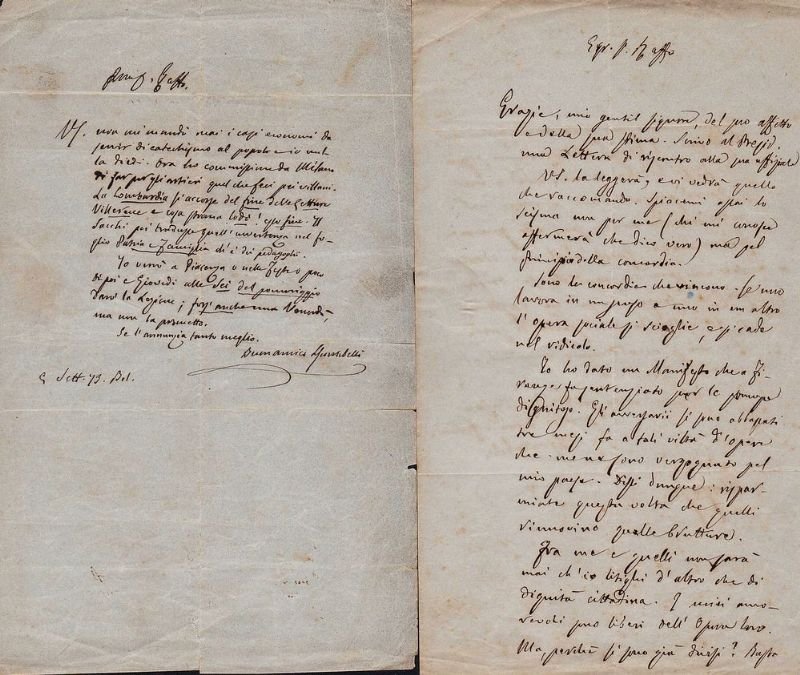 VS. non mi mandò mai i casi economi da
servir di catechismo al popolo e io
diedi. Ora ho commissione da Milano
di far per gli artieri quel che feci pei villani.
La Lombardia si accorse del fine delle Letture
Villerecce e cosa strana lodò! Il
Sacchi poi tradusse quell'avvertenza nel fo-
glio Patria e Famiglia
Io verrò a Piacenza o nelle Feste o poco
di poi e Giovedì alle Sei del pomeriggio
Darò la Lezione; fors'anche una Venerdì,
ma non la prometto.
Se l'annunzia tanto meglio.
Sett. 73. Bel.
Egr. S. Raffo
Grazie, mio gentil signore, del suo affetto
e della sua stima. Scrivo al Presid.
una Lettera di riscontro alla sua
VS. la leggerà, e vi vedrà quello
che raccomando. Spiacemi assai lo
scisma non per me (chi mi conosce
affermerà che dico vero) ma pel
principio della concordia.
Sono le concordie che vincono. Se uno
lavora in un senso e uno in un altro
l'opera sociale si scioglie, e si cade
nel ridicolo.
Io ho dato un Manifesto che a Fi-
renze fu sentenziato per
Dignitoso. Gli avversarii si sono abbassati
tre mesi fa a tali viltà d'opere
che me ne sono vergognato pel
mio paese. Dissi dunque: rispar-
miate questa volta che quelli
rinnovino quelle brutture.
Fra me e quelli non sarà
mai ch'io litighi d'altro che di
dignità cittadina. I miei amo-
revoli sono liberi dell'Opera loro.
Ma, perchè si sono già divisi? Basta